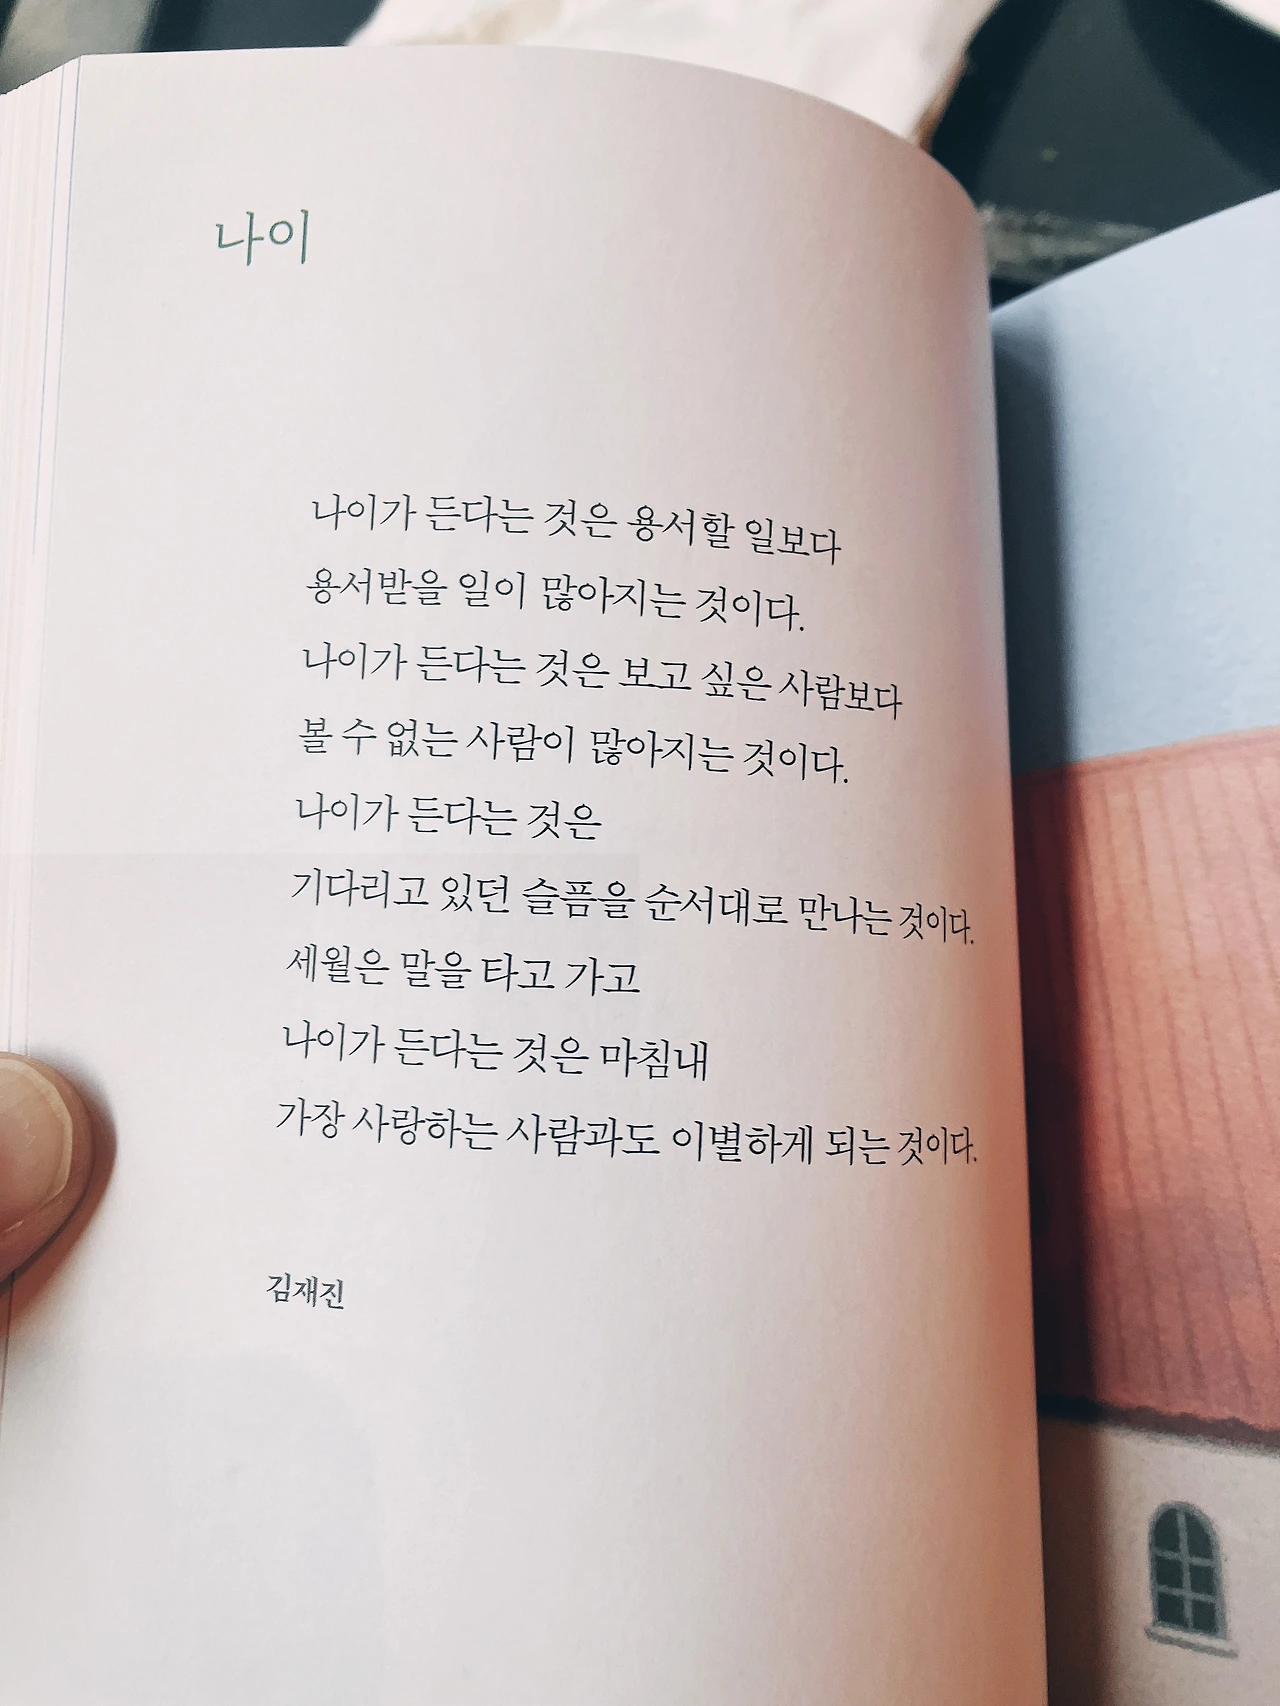 나이
나이가 든다는 것은 용서할 일보다
용서받을 일이 많아지는 것이다.
나이가 든다는 것은 보고 싶은 사람보다
볼 수 없는 사람이 많아지는 것이다.
나이가 든다는 것은
기다리고 있던 슬픔을 순서대로 만나는 것이다.
세월은 말을 타고 가고
나이가 든다는 것은 마침내
가장 사랑하는 사람과도 이별하게 되는 것이다.
김재진